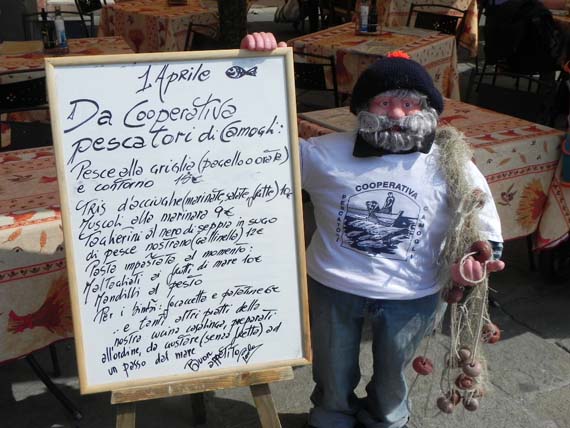 1 Aprile
Da Cooperativa
pescatori di Camogli:
Pesce alla griglia (pagello o orata)
e contorno 15€
Tris d'acciughe (marinate, salate, fritte) 10€
Muscoli alla marinara 9€
Taglierini al nero di seppia in sugo
di pesce nostrano (gallinella) 12€
Pasta impastata al momento:
Maltagliati ai frutti di mare 10€
Mandilli al pesto
Per i bimbi: focaccetta e patatine 6€
... e tanti altri piatti della
nostra cucina casalinga, preparati
all'ordine, da gustare (senza fretta) ad
un passo dal mare
Buon
appetito
COOPERATIVA
PESCATORI
CAMOGLI